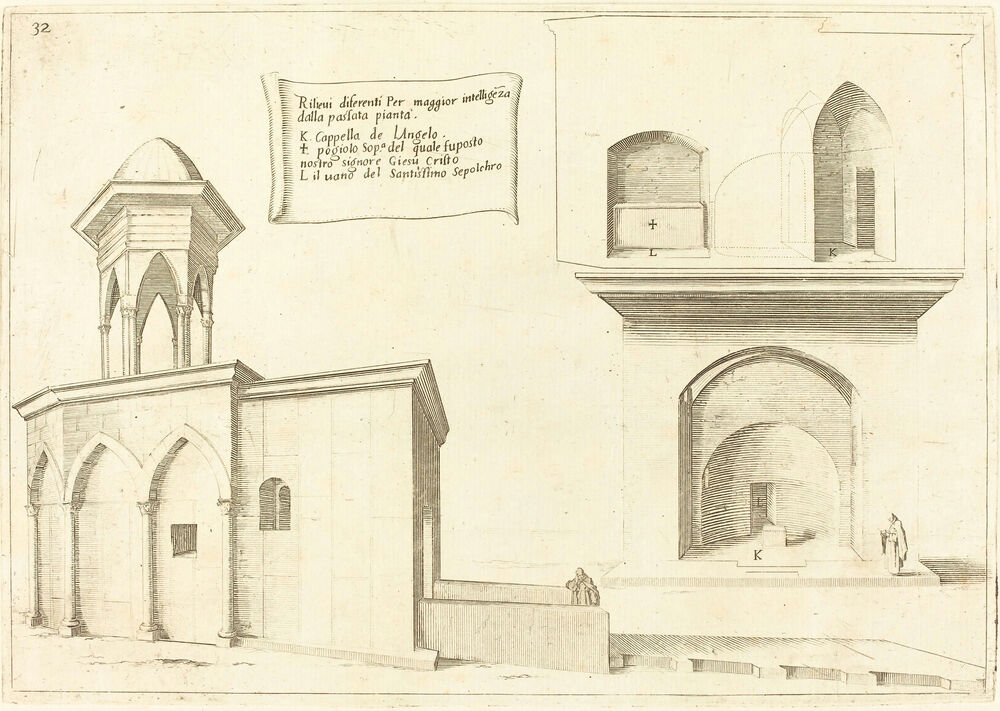 32
Rilieui diferenti Per maggior intelligēza
dalla passata pianta.
K. Cappella de lAngelo.
✝ pogiolo Sop.ª del quale fuposto
nostro signore Giesù Cristo
L il uano del Santissimo Sepolchro
✝
L
K
L
K